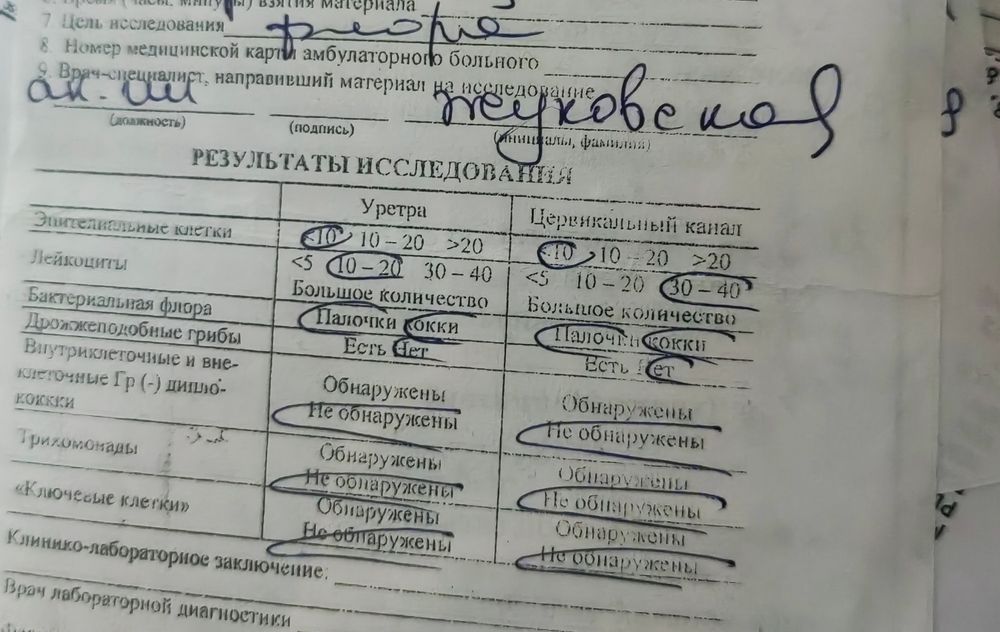 6. Время (часы, минуты) взятия материала
7. Цель исследования флора
8. Номер медицинской карты амбулаторного больного
9. Врач-специалист, направивший материал на исследование
ак. Жуковская
(должность) (подпись) (инициалы, фамилия)
РЕЗУЛЬТАТЫ ИССЛЕДОВАНИЯ
Уретра Цервикальный канал
Эпителиальные клетки <10 10 – 20 >20 <10 10 – 20 >20
Лейкоциты <5 10 – 20 30 – 40 <5 10 – 20 30 – 40
Большое количество Большое количество
Бактериальная флора Палочки кокки Палочки кокки
Дрожжеподобные грибы Есть Нет Есть Нет
Внутриклеточные и вне-
клеточные Гр (-) дипло- Обнаружены Обнаружены
кокки Не обнаружены Не обнаружены
Трихомонады Обнаружены Обнаружены
Не обнаружены Не обнаружены
«Ключевые клетки» Обнаружены Обнаружены
Не обнаружены Не обнаружены
Клинико-лабораторное заключение:
Врач лабораторной диагностики